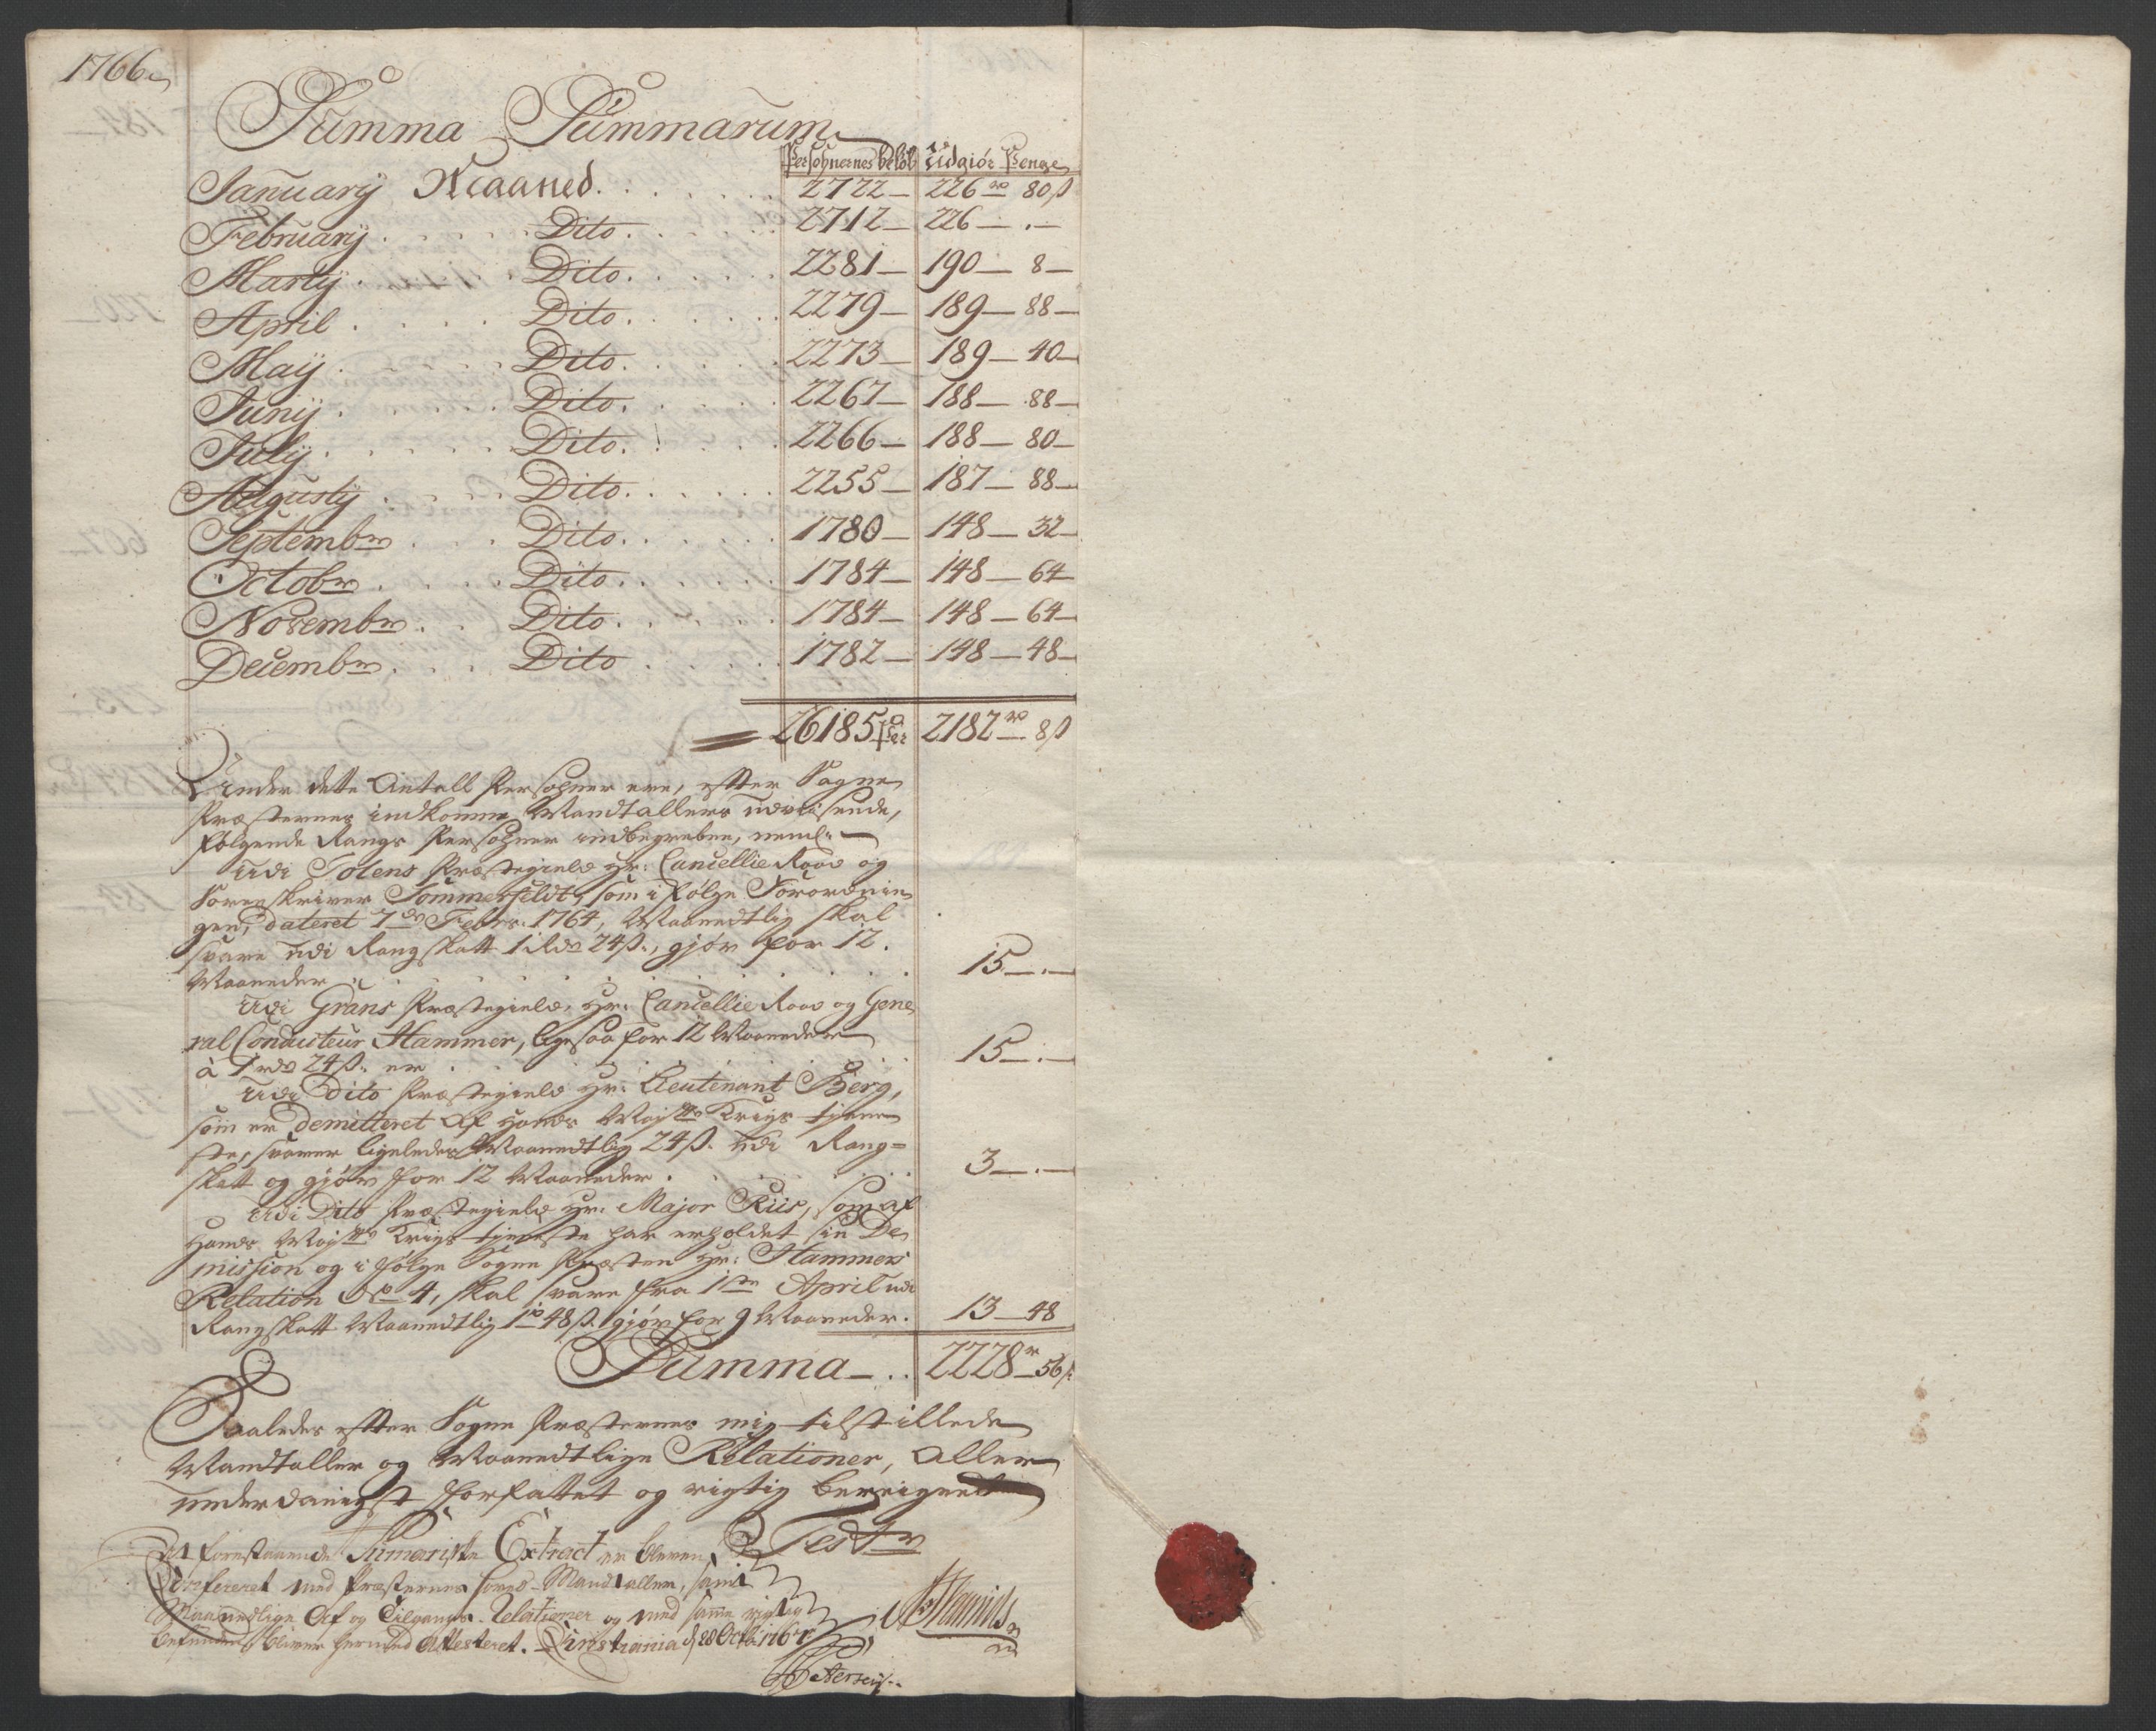 1766
Summa Summarum
Persohnernes beløb Udgiør Penge
Januarÿ Maaned. 2722— 226 rd 80 s
Februarÿ Dito. 2712— 226—.—
Martÿ Dito. 2281— 190— 8—
April Dito. 2279— 189— 88—
Maÿ Dito. 2273— 189— 40—
Junÿ Dito. 2267— 188— 88—
Julÿ Dito. 2266— 188— 80—
Augustÿ Dito. 2255— 187— 88—
Septembr Dito. 1780— 148— 32—
Octobr Dito. 1784— 148— 64—
Novembr Dito. 1784— 148— 64—
Decembr Dito 1782— 148— 48—
26185 Per 2182 rd 8 s
Under dette Antall Persohner ere, efter Sogne
Præsternes indkomne Mandtallers udviisende,
følgende Rangs Persohner indbegreben, neml:
Udi Totens Præstegield Hr: Cancellie Raad og
Sorenskriver Sommerfeldt, som i følge Forordnin
gen, dateret 7de Febr. 1764, Maanedtlig skal
svare udi Rangskatt 1 rd 24 s., giør for 12.
Maaneder 15—.—
Udi Grans Præstegield, Hr: Cancellie Raad og Gene
ral Conducteur Hammer, ligesaa for 12 Maaneder
à 1 rd 24 s. er 15—.—
Udi Dito Præstegield Hr: Lieutenant Berg,
som er demitteret af Hands Maÿts Krigs tiene
ste, svarer ligeledes Maanedtlig 24 s. udi Rang=
skatt og giør for 12 Maaneder. 3—.—
Udi Dito Præstegield Hr: Major Riis, som af
Hands Maÿts Krigs tieneste har erholdet sin De
mission og i følge Sogne Præsten Hr: Hammers
Relation No 4, skal svare fra 1ste April udi
Rangskatt Maanedtlig 1 rd 48 s. giør for 9 Maaneder. 13—48
Summa—.. 2228 r 56 s
Saaledes efter Sogne Præsternes mig tilstillede
Mandtaller og Maanedtlige Relationer, aller
underdanigst forfattet og rigtig bereignet
Test
At forestaaende Sumariske Extract er bleven
Confereret med Præsternes Mandtaller, samt
Maanedlige Af og Tilgangs Relationer og med samme rigtig
befunden, bliver hermed Attesteret. Christiania d 28 Octb: 1767